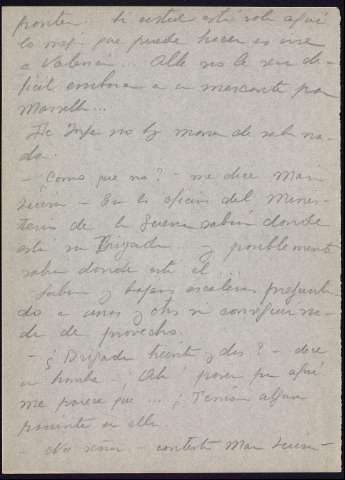 frontera. Si usted está sola aquí
lo mejor que puede hacer es irse
a Valencia... Allí no le será di-
fícil embarcar en un mercante para
Marsella...
De Jorge no hay manera de saber na-
da.
- ¿Como que no? - me dice María
Teresa - En la oficina del Minis-
terio de la Guerra sabrán donde
está su Brigada... y posiblemente
saben donde está él...
Suben y bajan escaleras pregunta
do a unos y otros sin conseguir na-
da de provecho.
- ¿Brigada treinta y dos? - dice
un hombre - ¡Ah! pasen por aquí
me parece que... ¿Tenían algun
pariente en ella.
- No señor - contesta María Teresa -